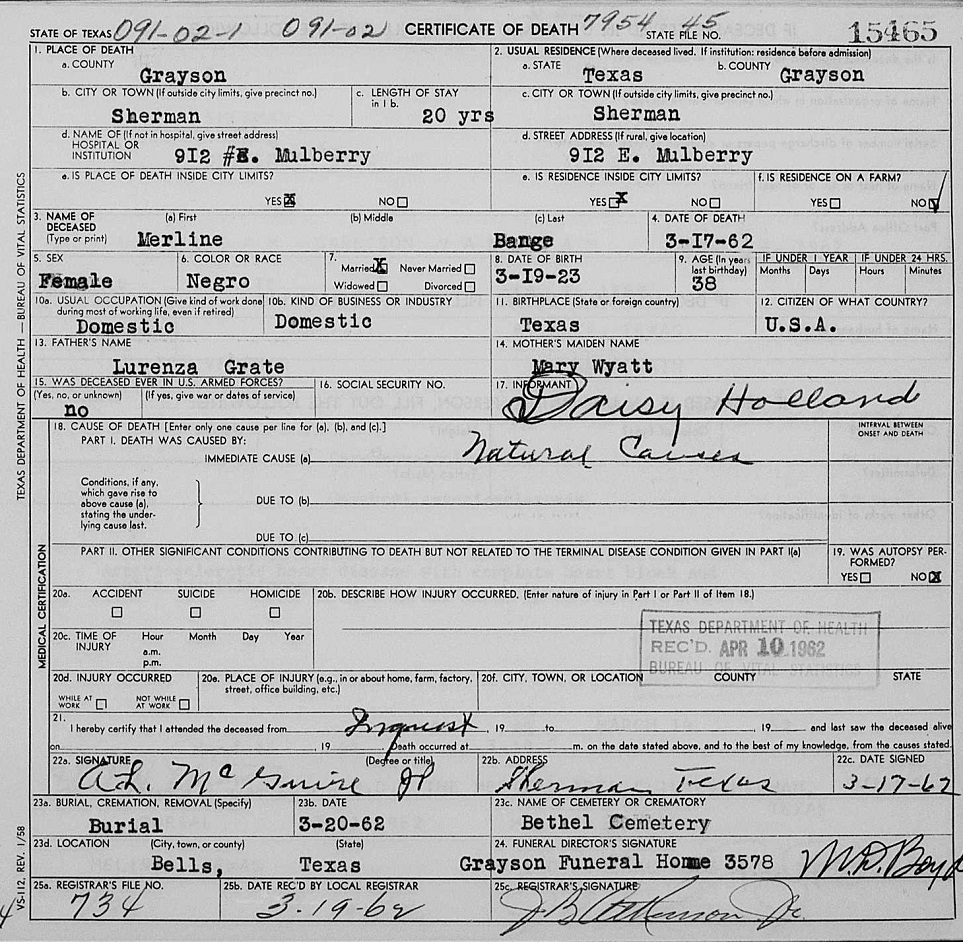 STATE OF TEXAS 091-02-1 091-02 CERTIFICATE OF DEATH 7954 45 STATE FILE NO. 15465
1. PLACE OF DEATH
a. COUNTY
Grayson
2. USUAL RESIDENCE (Where deceased lived. If institution: residence before admission)
a. STATE b. COUNTY
Texas Grayson
b. CITY OR TOWN (If outside city limits, give precinct no.)
Sherman
c. LENGTH OF STAY in 1 b.
20 yrs
c. CITY OR TOWN (If outside city limits, give precinct no.)
Sherman
d. NAME OF (If not in hospital, give street address)
HOSPITAL OR
INSTITUTION 9I2 #E. Mulberry
d. STREET ADDRESS (If rural, give location)
9I2 E. Mulberry
e. IS PLACE OF DEATH INSIDE CITY LIMITS?
YES X NO
e. IS RESIDENCE INSIDE CITY LIMITS?
YES X NO
f. IS RESIDENCE ON A FARM?
YES NO
3. NAME OF DECEASED (Type or print)
(a) First (b) Middle (c) Last
Merline Bange
4. DATE OF DEATH
3-I7-62
5. SEX
Female
6. COLOR OR RACE
Negro
7.
Married X Never Married
Widowed Divorced
8. DATE OF BIRTH
3-I9-23
9. AGE (In years last birthday)
38
IF UNDER 1 YEAR IF UNDER 24 HRS.
Months Days Hours Minutes
10a. USUAL OCCUPATION (Give kind of work done during most of working life, even if retired)
Domestic
10b. KIND OF BUSINESS OR INDUSTRY
Domestic
11. BIRTHPLACE (State or foreign country)
Texas
12. CITIZEN OF WHAT COUNTRY?
U.S.A.
13. FATHER'S NAME
Lurenza Grate
14. MOTHER'S MAIDEN NAME
Mary Wyatt
15. WAS DECEASED EVER IN U.S. ARMED FORCES?
(Yes, no, or unknown) (If yes, give war or dates of service)
no
16. SOCIAL SECURITY NO.
17. INFORMANT
Daisy Holland
18. CAUSE OF DEATH [Enter only one cause per line for (a), (b), and (c).]
PART I. DEATH WAS CAUSED BY:
IMMEDIATE CAUSE (a) Natural Causes
INTERVAL BETWEEN
ONSET AND DEATH
Conditions, if any,
which gave rise to
above cause (a),
stating the under-
lying cause last.
DUE TO (b)
DUE TO (c)
PART II. OTHER SIGNIFICANT CONDITIONS CONTRIBUTING TO DEATH BUT NOT RELATED TO THE TERMINAL DISEASE CONDITION GIVEN IN PART I(a)
19. WAS AUTOPSY PER-
FORMED?
YES NO X
20a. ACCIDENT SUICIDE HOMICIDE
20b. DESCRIBE HOW INJURY OCCURRED. (Enter nature of injury in Part I or Part II of Item 18.)
20c. TIME OF INJURY
Hour Month Day Year
a.m.
p.m.
TEXAS DEPARTMENT OF HEALTH
REC'D. APR 10 1962
BUREAU OF VITAL STATISTICS
20d. INJURY OCCURRED
WHILE AT WORK NOT WHILE AT WORK
20e. PLACE OF INJURY (e.g., in or about home, farm, factory, street, office building, etc.)
20f. CITY, TOWN, OR LOCATION COUNTY STATE
21.
I hereby certify that I attended the deceased from Inquest, 19 to , 19 and last saw the deceased alive
on , 19 Death occurred at m. on the date stated above, and to the best of my knowledge, from the causes stated.
22a. SIGNATURE (Degree or title)
A.L. McGuire JP
22b. ADDRESS
Sherman Texas
22c. DATE SIGNED
3-17-62
23a. BURIAL, CREMATION, REMOVAL (Specify)
Burial
23b. DATE
3-20-62
23c. NAME OF CEMETERY OR CREMATORY
Bethel Cemetery
23d. LOCATION (City, town, or county) (State)
Bells, Texas
24. FUNERAL DIRECTOR'S SIGNATURE
Grayson Funeral Home 3578 M.D. Boyd
25a. REGISTRAR'S FILE NO.
734
25b. DATE REC'D BY LOCAL REGISTRAR
3-19-62
25c. REGISTRAR'S SIGNATURE
TEXAS DEPARTMENT OF HEALTH — BUREAU OF VITAL STATISTICS
MEDICAL CERTIFICATION
VS-112, REV. 1/58